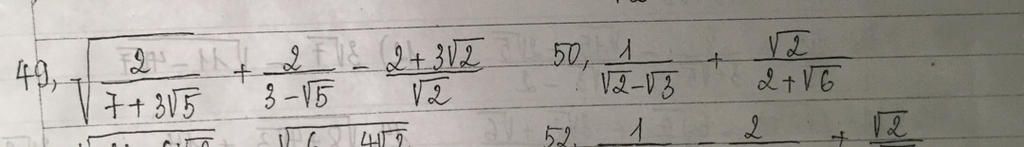 49, √(2/(7+3√5)) + 2/(3-√5) - (2+3√2)/√2    50, 1/(√2-√3) + √2/(2+√6)
52, 1 - 2 + √2